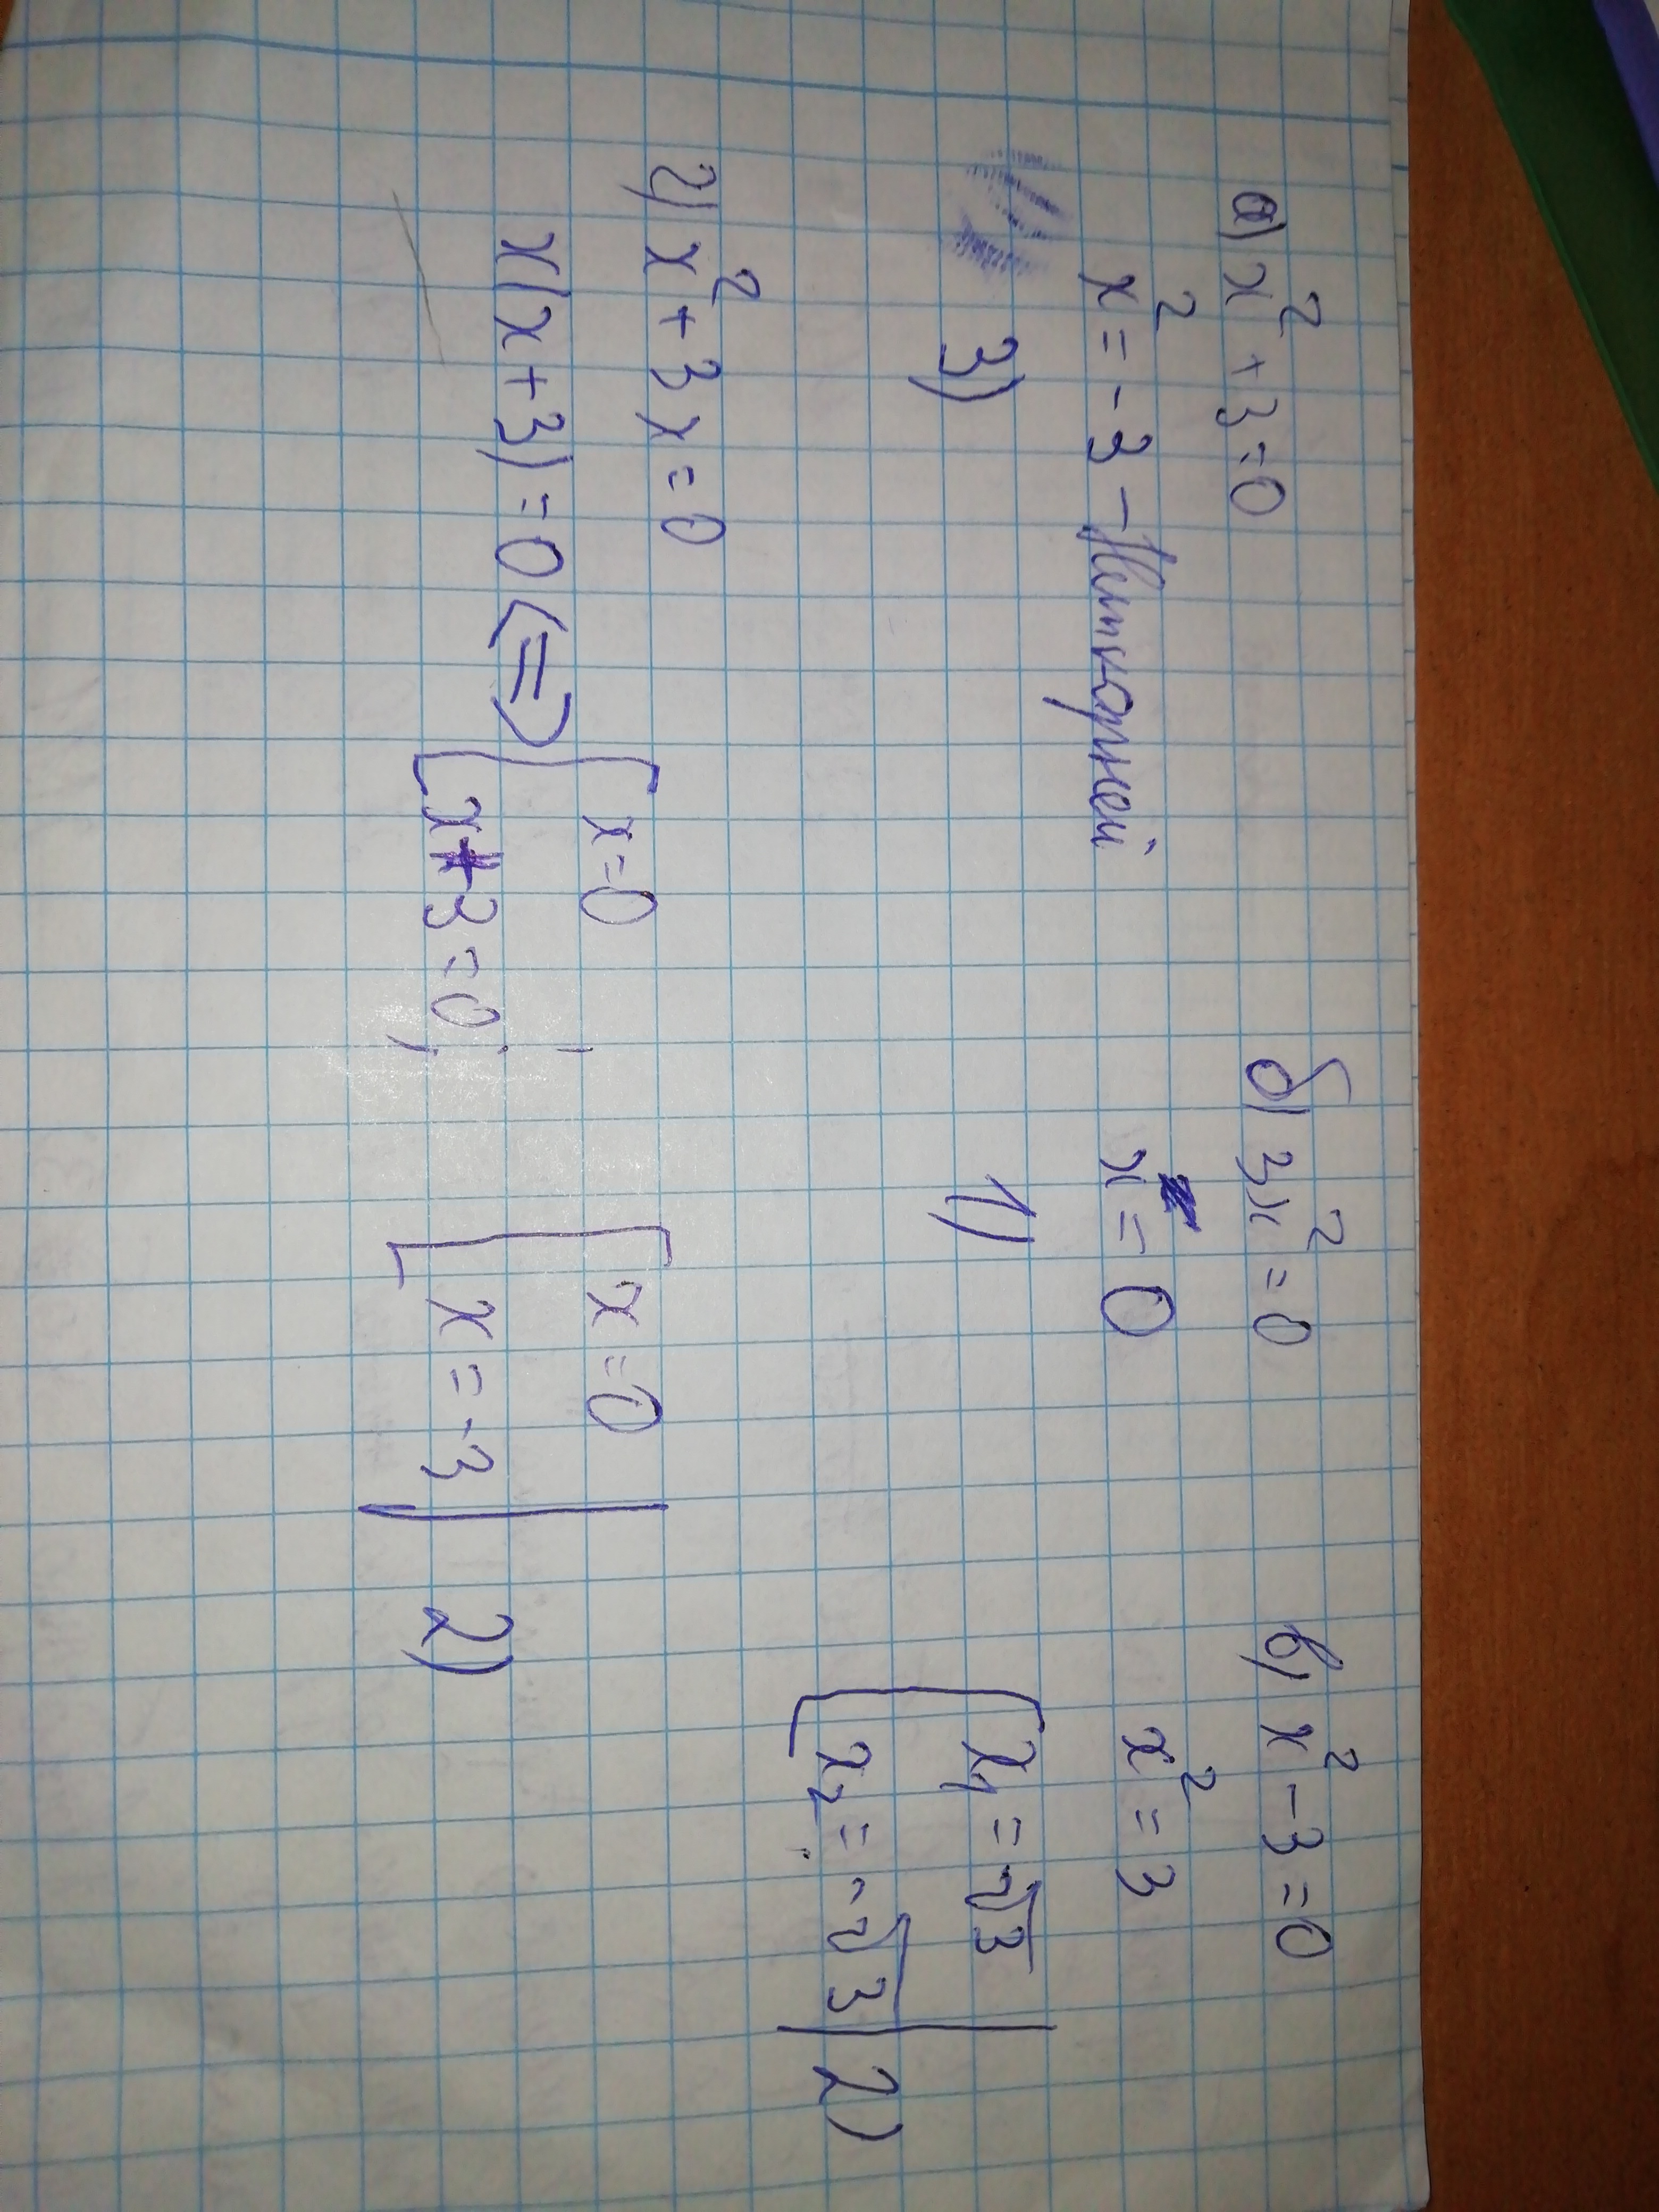 а) x² + 3 = 0
x² = -3 - Нет корней
3)
б) 3x² = 0
x = 0
1)
в) x² - 3 = 0
x² = 3
[ x₁ = √3
[ x₂ = -√3
2)
г) x² + 3x = 0
x(x + 3) = 0 <=> [ x = 0 ; [ x = 0
[ x + 3 = 0 ; [ x = -3
2)